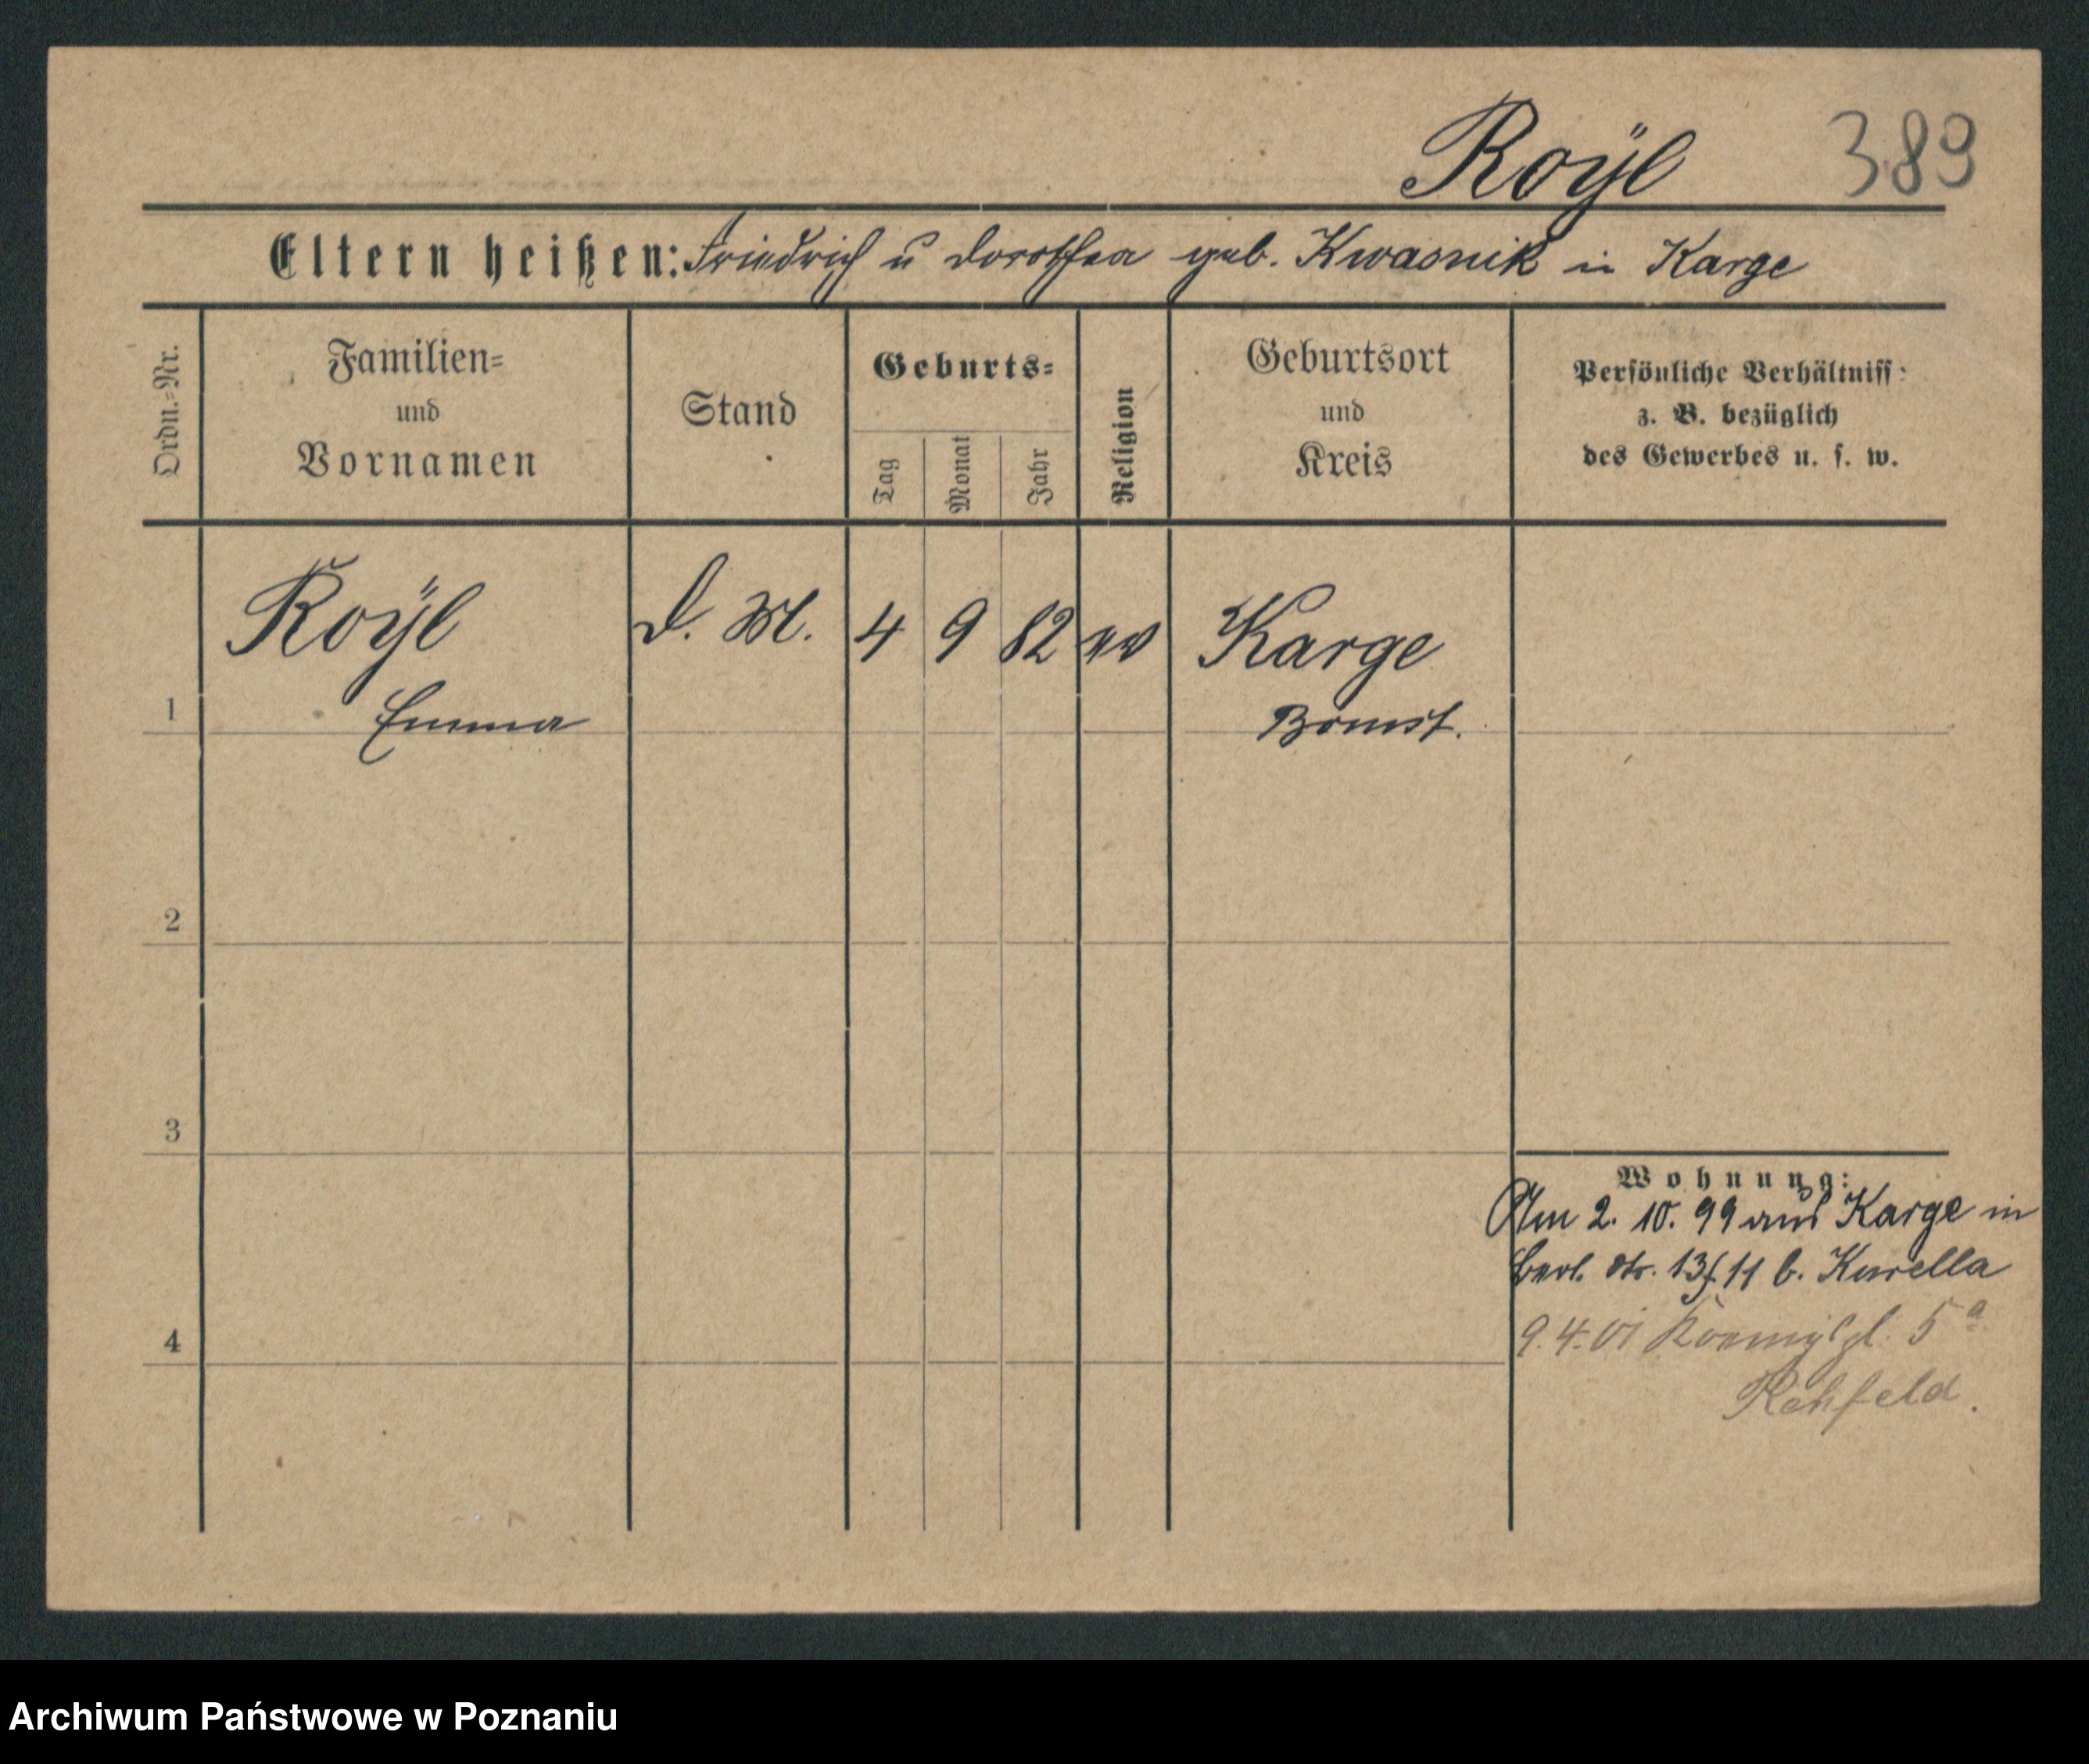 Roÿl 389
Eltern heißen: Friedrich u Dorothea geb. Kwasnik in Karge
Ordn.-Nr.
Familien-
und
Vornamen
Stand
Geburts-
Tag
Monat
Jahr
Religion
Geburtsort
und
Kreis
Persönliche Verhältniss:
z. B. bezüglich
des Gewerbes u. s. w.
Roÿl D. M. 4 9 82 ev Karge
1 Emma Bomst.
2
3
Wohnung:
Am 2. 10. 99 aus Karge in
Berl. Str. 13/11 b. Kurella
4 9.4.01 Koenigspl. 5a
Rehfeld.
Archiwum Państwowe w Poznaniu